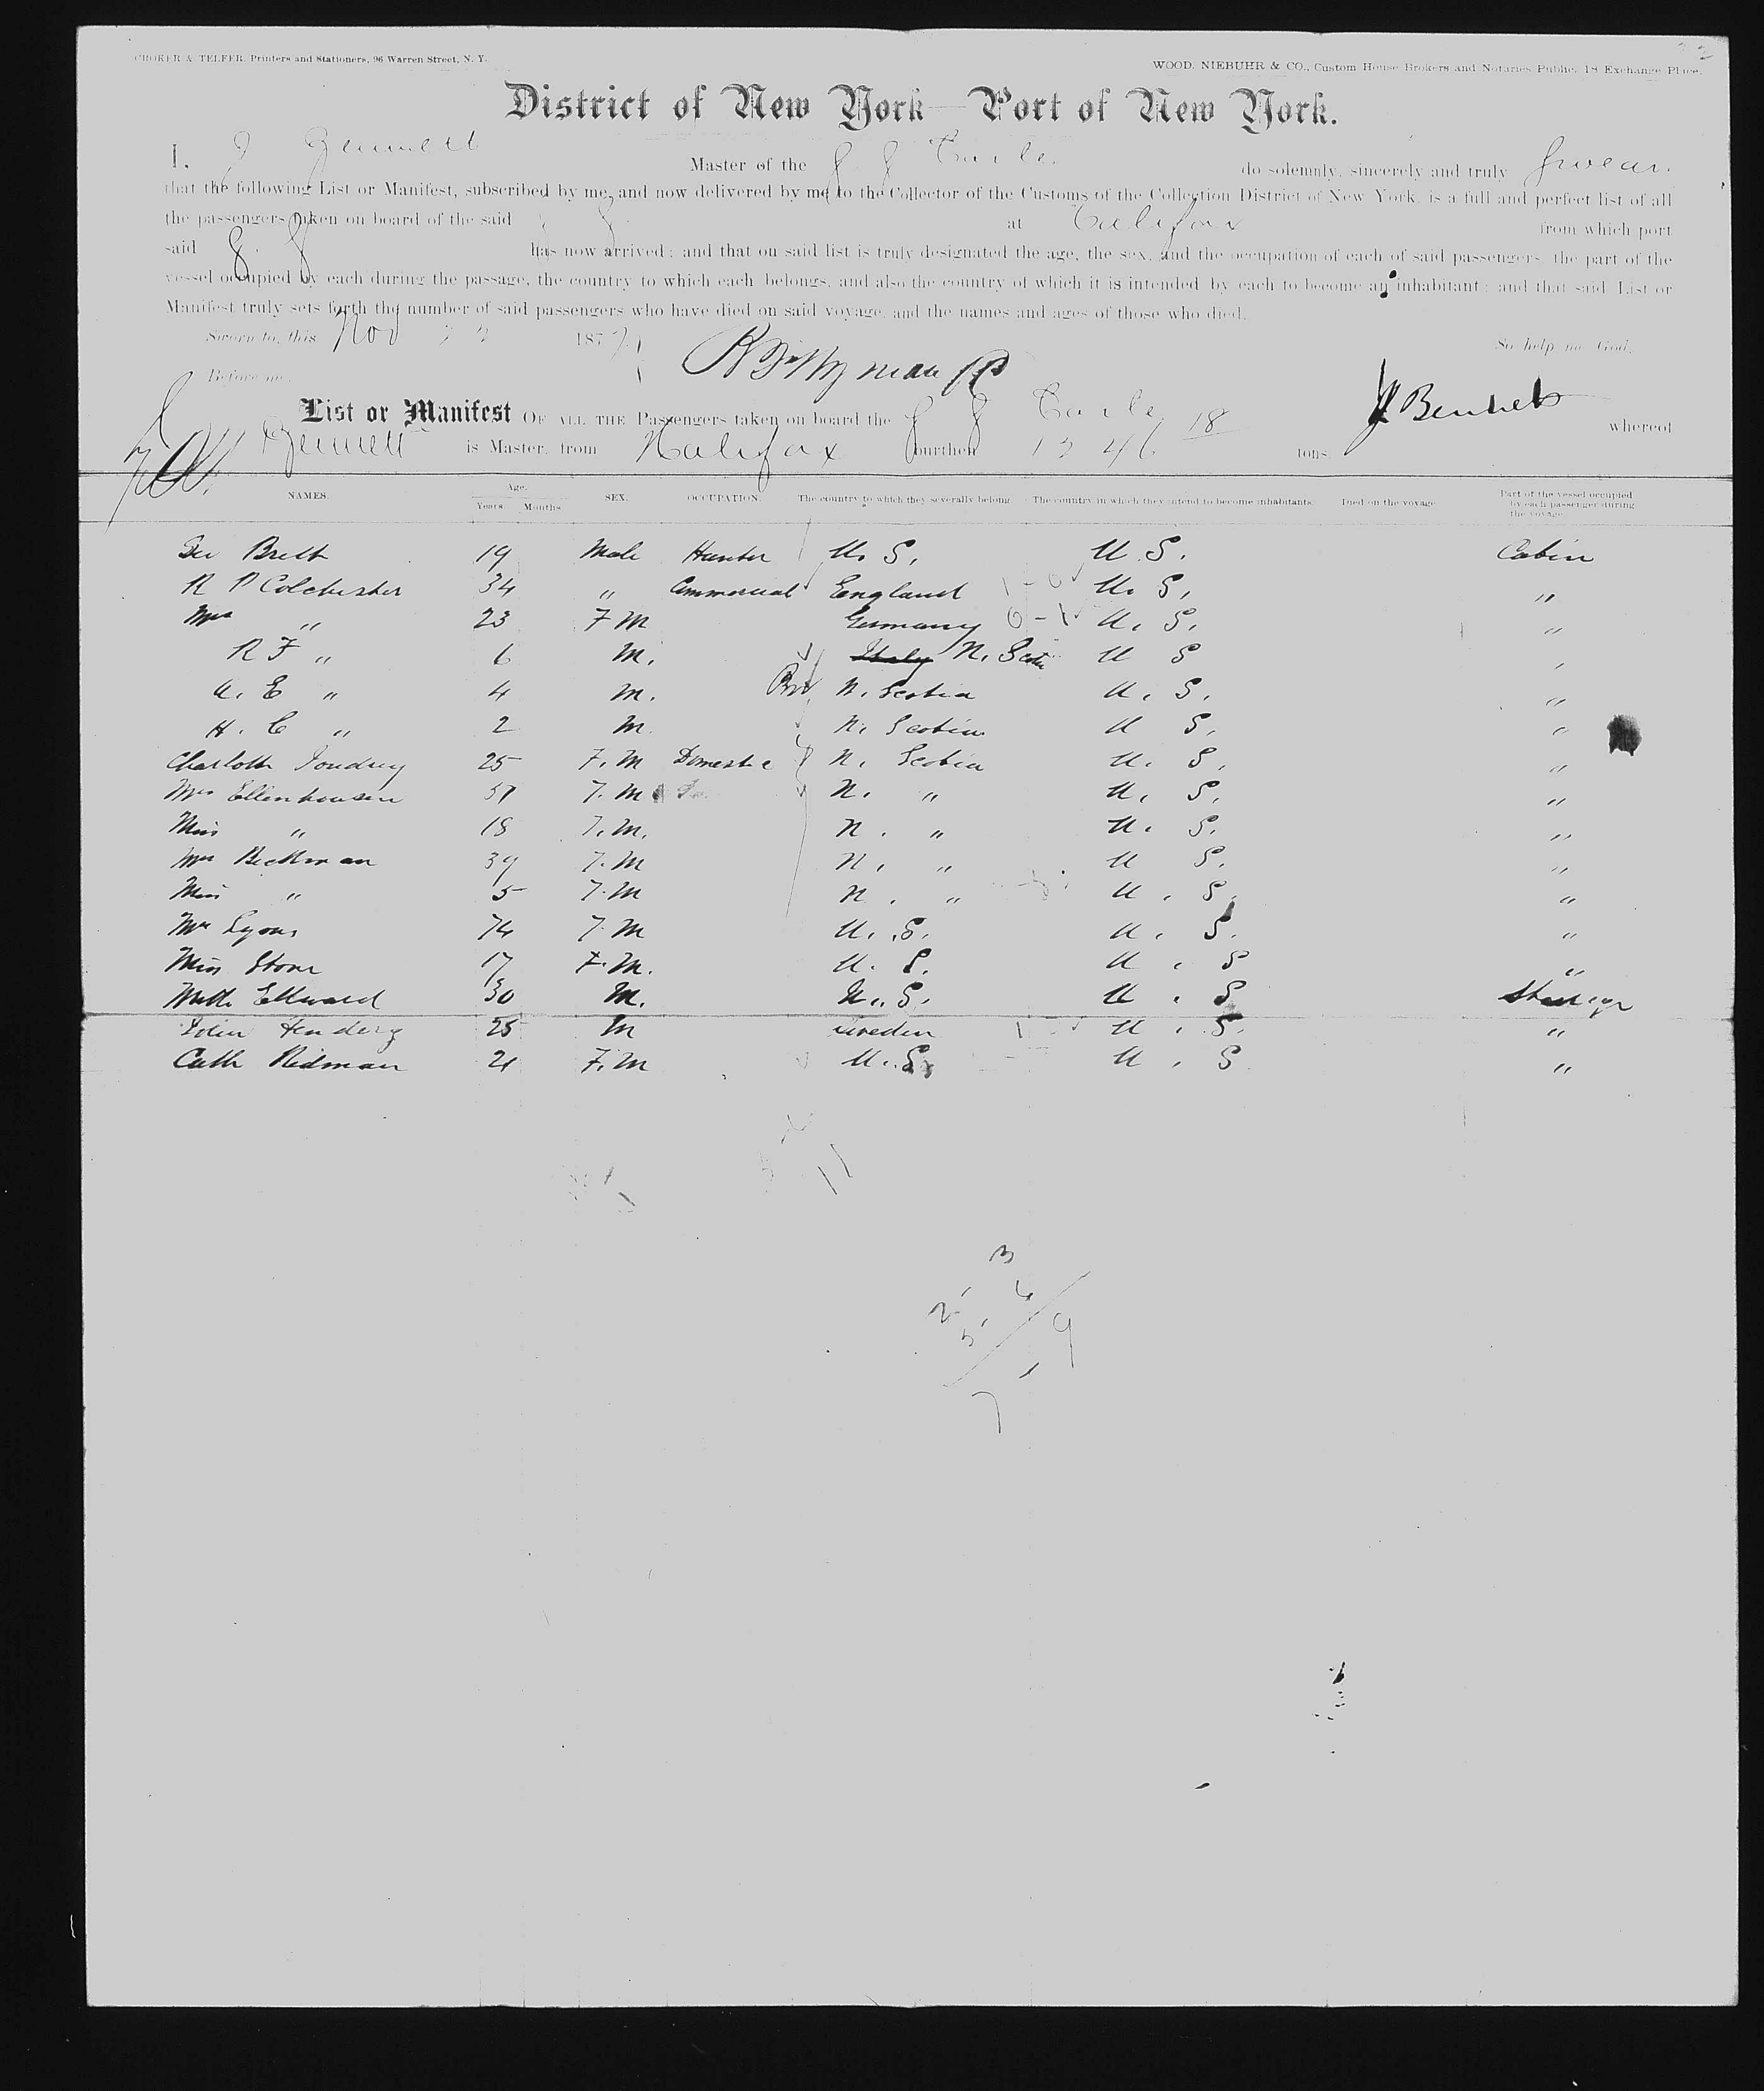 CROKER & TELFER, Printers and Stationers, 96 Warren Street, N. Y.
WOOD, NIEBUHR & CO., Custom House Brokers and Notaries Public, 18 Exchange Place.
District of New York—Port of New York.
I, J Master of the S S do solemnly, sincerely and truly swear
that the following List or Manifest, subscribed by me, and now delivered by me to the Collector of the Customs of the Collection District of New York, is a full and perfect list of all
the passengers taken on board of the said S S at Halifax from which port
said S. S has now arrived; and that on said list is truly designated the age, the sex, and the occupation of each of said passengers, the part of the
vessel occupied by each during the passage, the country to which each belongs, and also the country of which it is intended by each to become an inhabitant; and that said List or
Manifest truly sets forth the number of said passengers who have died on said voyage, and the names and ages of those who died.
Sworn to, this Nov 22 187 So help me God.
Before me,
J Bennett
List or Manifest OF ALL THE Passengers taken on board the S S whereof
Bennett is Master, from Halifax burthen 1346 18 tons.
NAMES. Age. Years. Months. SEX. OCCUPATION. The country to which they severally belong. The country in which they intend to become inhabitants. Died on the voyage. Part of the vessel occupied by each passenger during the voyage.
Brett 19 Male U. S. U. S. Cabin
R P Colchester 34 " Commercial England 1-0 U. S. "
Mrs " 23 F M Germany 0-1 U. S. "
R F " 6 M. Italy N. Scotia U S "
A. E " 4 M. N. Scotia U. S. "
H. C " 2 M. N. Scotia U S. "
Charlotte 25 F. M Domestic N. Scotia U. S. "
Mrs Ellenhousen 51 F. M N. " U. S. "
Miss " 18 F. M. N. " U. S. "
Mrs 39 F. M N. " U S. "
Miss " 5 F. M N. " U. S. "
Mrs Lyons 74 F. M U. S. U. S. "
Miss Stone 17 F. M. U. S. U. S "
30 M. U. S. U. S Steerage
25 M Sweden U. S. "
Cath Redman 21 F. M U. S. U. S "
11
3
6
9
2
5
7